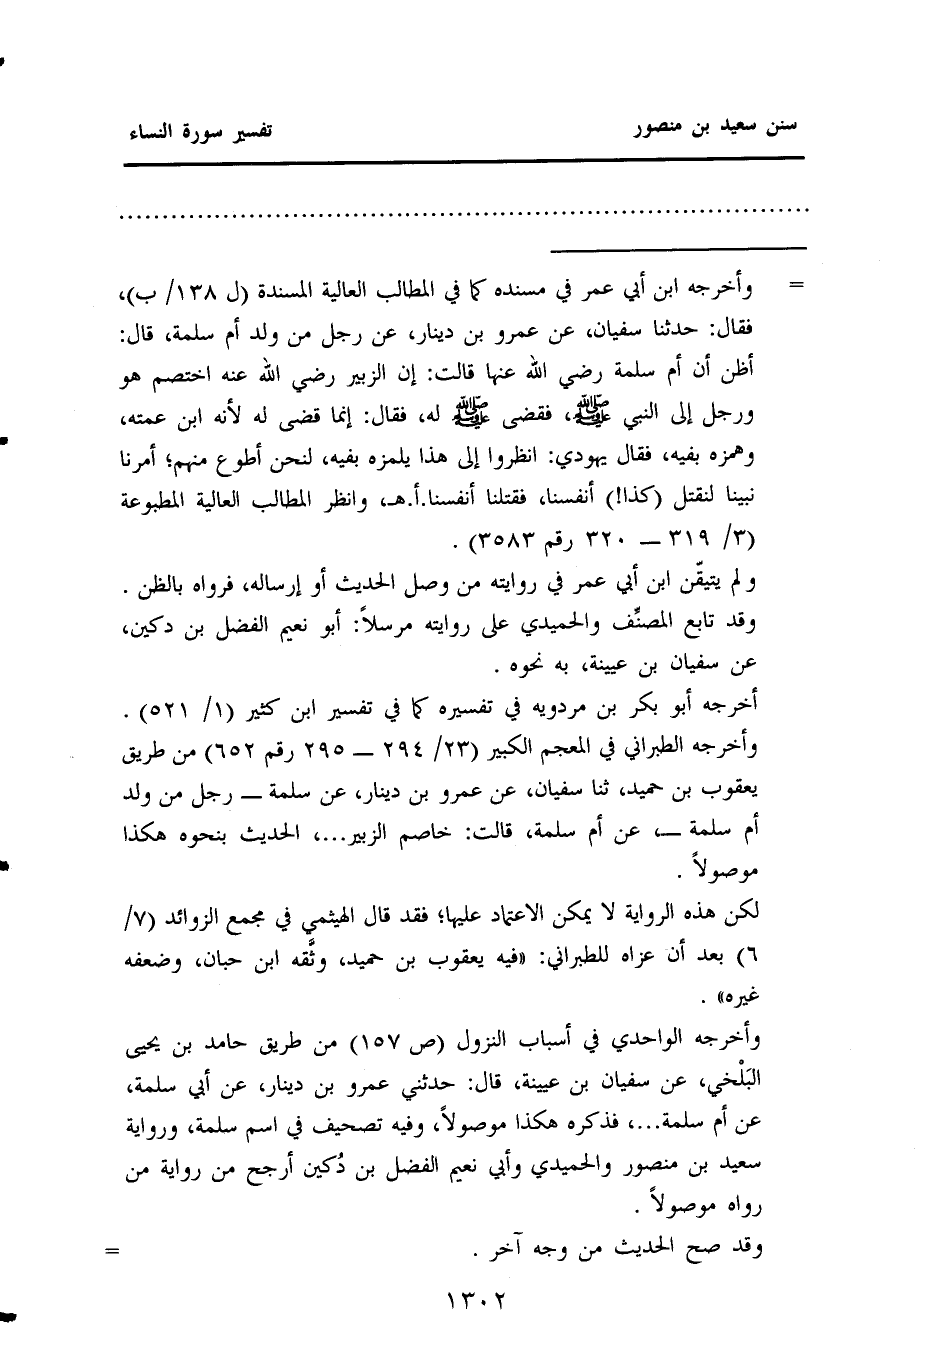 سنن سعيد بن منصور تفسير سورة النساء
= وأخرجه ابن أبي عمر في مسنده كما في المطالب العالية المسندة (ل ١٣٨/ ب)،
فقال: حدثنا سفيان، عن عمرو بن دينار، عن رجل من ولد أم سلمة، قال:
أظن أن أم سلمة رضي الله عنها قالت: إن الزبير رضي الله عنه اختصم هو
ورجل إلى النبي ﷺ، فقضى ﷺ له، فقال: إنما قضى له لأنه ابن عمته،
وهمزه بفيه، فقال يهودي: انظروا إلى هذا يلمزه بفيه، لنحن أطوع منهم؛ أمرنا
نبينا لنقتل (كذا!) أنفسنا، فقتلنا أنفسنا.أ.هـ، وانظر المطالب العالية المطبوعة
(٣/ ٣١٩ ــ ٣٢٠ رقم ٣٥٨٣) .
ولم يتيقّن ابن أبي عمر في روايته من وصل الحديث أو إرساله، فرواه بالظن .
وقد تابع المصنِّف والحميدي على روايته مرسلاً: أبو نعيم الفضل بن دكين،
عن سفيان بن عيينة، به نحوه .
أخرجه أبو بكر بن مردويه في تفسيره كما في تفسير ابن كثير (١/ ٥٢١) .
وأخرجه الطبراني في المعجم الكبير (٢٣/ ٢٩٤ ــ ٢٩٥ رقم ٦٥٢) من طريق
يعقوب بن حميد، ثنا سفيان، عن عمرو بن دينار، عن سلمة ــ رجل من ولد
أم سلمة ــ، عن أم سلمة، قالت: خاصم الزبير...، الحديث بنحوه هكذا
موصولاً .
لكن هذه الرواية لا يمكن الاعتماد عليها؛ فقد قال الهيثمي في مجمع الزوائد (٧/
٦) بعد أن عزاه للطبراني: «فيه يعقوب بن حميد، وثَّقه ابن حبان، وضعفه
غيره» .
وأخرجه الواحدي في أسباب النزول (ص ١٥٧) من طريق حامد بن يحيى
البَلْخي، عن سفيان بن عيينة، قال: حدثني عمرو بن دينار، عن أبي سلمة،
عن أم سلمة...، فذكره هكذا موصولاً، وفيه تصحيف في اسم سلمة، ورواية
سعيد بن منصور والحميدي وأبي نعيم الفضل بن دُكين أرجح من رواية من
رواه موصولاً .
وقد صح الحديث من وجه آخر . =
١٣٠٢